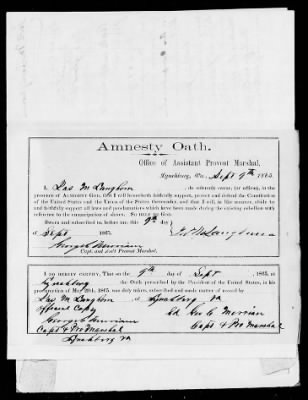 Amnesty Oath.
Office of Assistant Provost Marshal,
Lynchburg, Va., Sept 9th 1865.
I, Jas M Langhorn do solemnly swear, (or affirm), in the
presence of ALMIGHTY GOD, that I will henceforth faithfully support, protect and defend the Constitution
of the United States and the Union of the States thereunder, and that I will, in like manner, abide
by and faithfully support all laws and proclamations which have been made during the existing rebellion with
reference to the emancipation of slaves. SO HELP ME GOD.
Sworn and subscribed to before me, this 9th day
of Sept 1865.
Capt. and Ass't Provost Marshal.
I DO HEREBY CERTIFY, That on the 9th day of Sept, 1865, at
Lynchburg the Oath prescribed by the President of the United States, in his
proclamation of May 29th, 1865, was duly taken, subscribed and made matter of record by
Jas M Langhorn at Lynchburg Va
Official Copy
Sd. Geo. C Merriam
Capt & Pro Marshal
Capt & Pro Marshal
Lynchburg Va